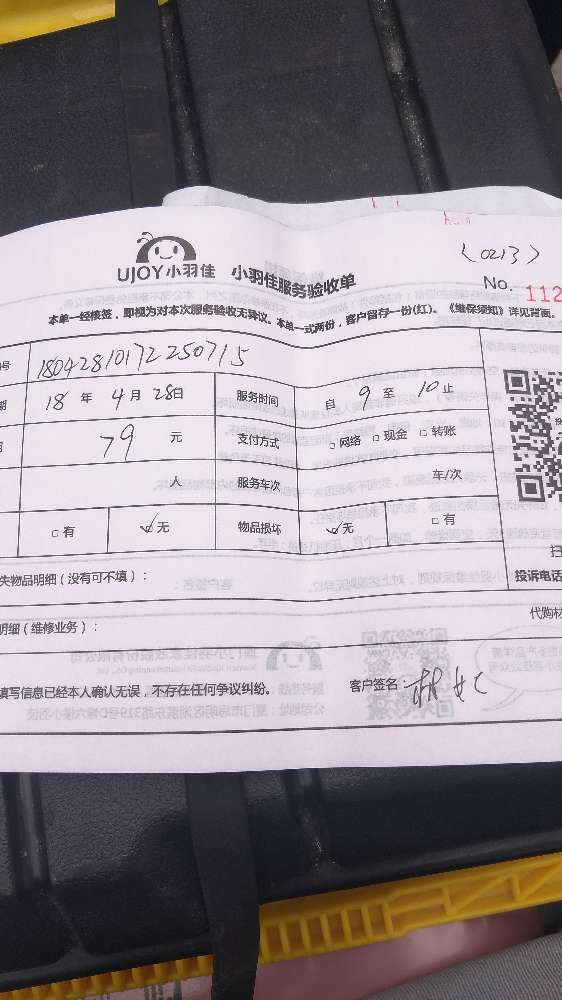 〈0213〉
UJOY小羽佳 小羽佳服务验收单
No. 112
本单一经核签,即视为对本次服务验收无异议。本单一式两份,客户留存一份(红)。《维保须知》详见背面。
号 18042810172250715
期 18 年 4 月 28日 服务时间 自 9 至 10 止
79 元 支付方式 □网络 □现金 □转账
人 服务车次 车/次
□有 ☑无 物品损坏 ☑无 □有
失物品明细(没有可不填): 投诉电话
明细(维修业务): 代购材
填写信息已经本人确认无误,不存在任何争议纠纷。 客户签名: